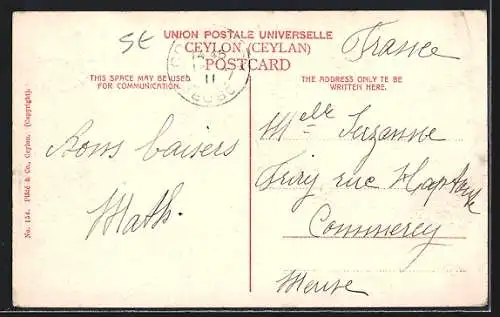 St
UNION POSTALE UNIVERSELLE
CEYLON (CEYLAN)
POSTCARD
France
THIS SPACE MAY BE USED
FOR COMMUNICATION.
THE ADDRESS ONLY TE BE
WRITTEN HERE.
11
Bons baisers
Math.
Melle Suzanne
rue
Commercy
Meuse
No. 154. Plâté & Co., Ceylon. (Copyright).